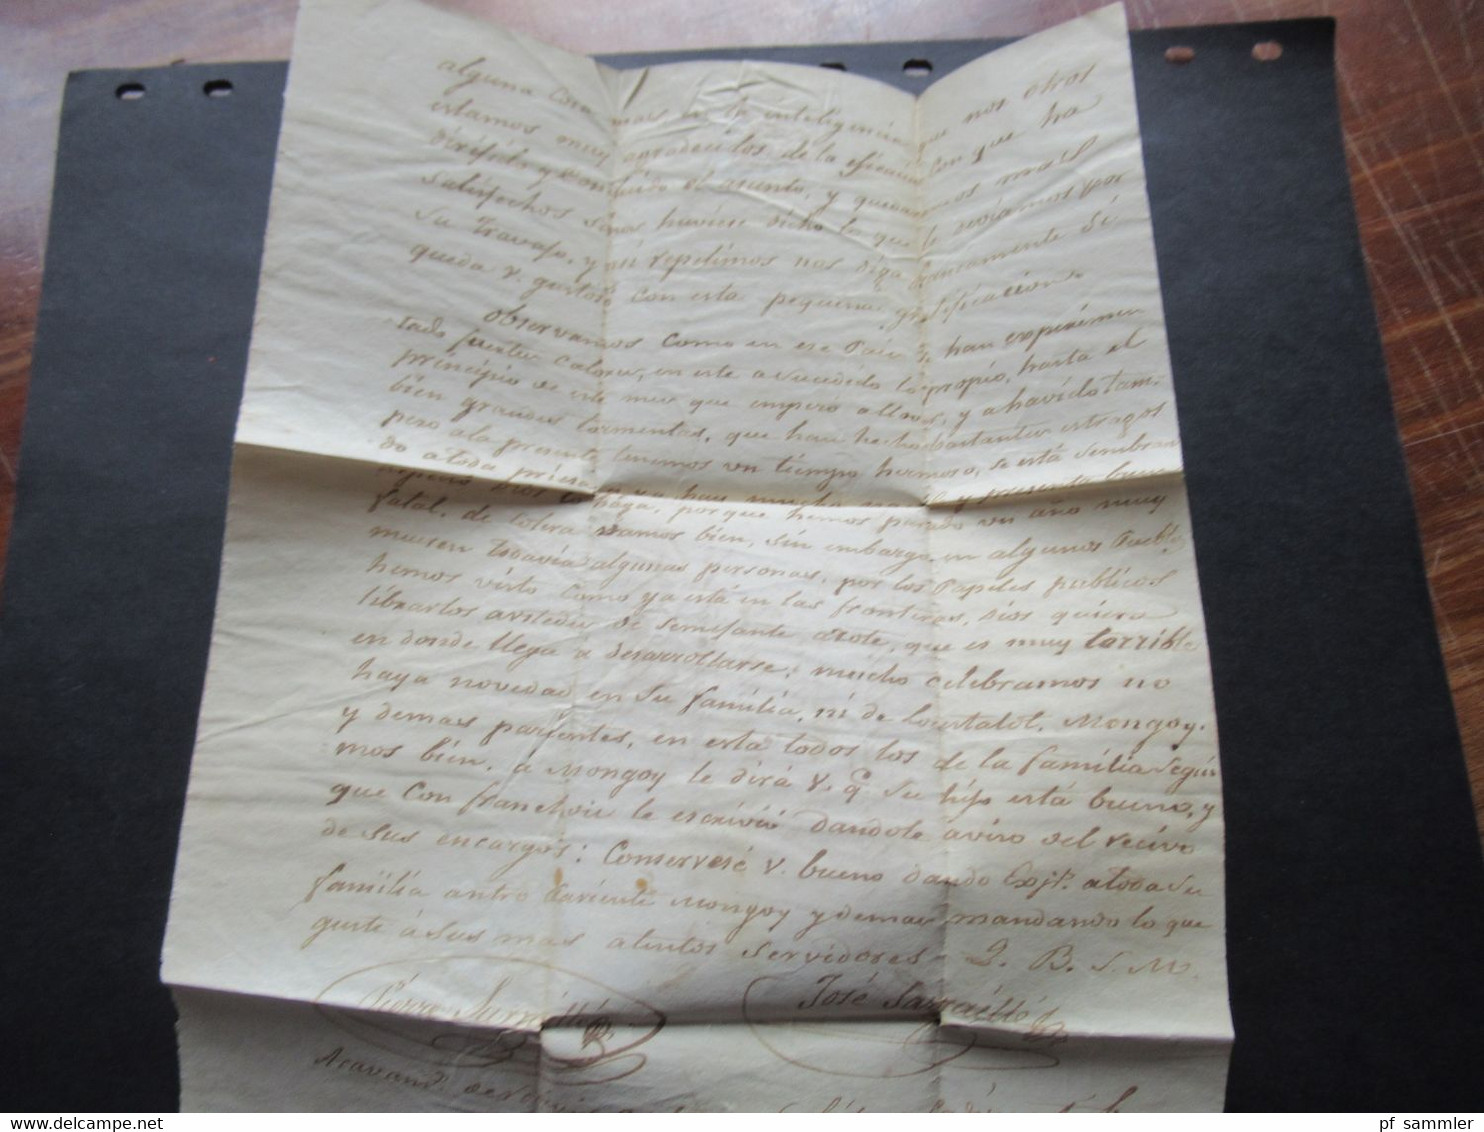 alguna cosa mas en la inteligencia que nos otros
estamos muy agradecidos de la eficacia con que ha
dirijido y concluido el asunto, y quedaremos mas
satisfechos si nos huviese dicho lo que le deviamos por
su travajo, y asi repetimos nos diga francamente si
queda v. gustoso con esta pequeña gratificacion.
Observamos como en ese Pais, han experimen
tado fuertes calores, en este a sucedido lo propio, hasta el
principio de este mes que empezo a llover, y a havido tam-
bien grandes tormentas, que han hecho bastantes estragos
pero a la presente tenemos un tiempo hermoso, se está sembran
do a toda priesa
Dios lo haga, porque hemos pasado un año muy
fatal. de colera vamos bien, sin embargo, en algunos Puebl.
mueren todavia algunas personas, por los Papeles publicos
hemos visto como ya está en las fronteras, Dios quiera
librarlos a ustedes de semejante azote, que es muy terrible
en donde llega a desarrollarse; mucho celebramos no
haya novedad en su familia, ni de Loustalot, Mongoy.
y demas parientes, en esta todos los de la familia segui
mos bien. a Mongoy le dirá V. q. su hijo está bueno, y
que con franchoiu le escrivió dandole aviso del recivo
de sus encargos: Conservesé v. bueno dando Expr. a toda su
familia antro Mongoy y demas mandando lo que
guste á sus mas atentos servidores - Q. B. S. M.
Pierre Sarraillé José Sarraillé